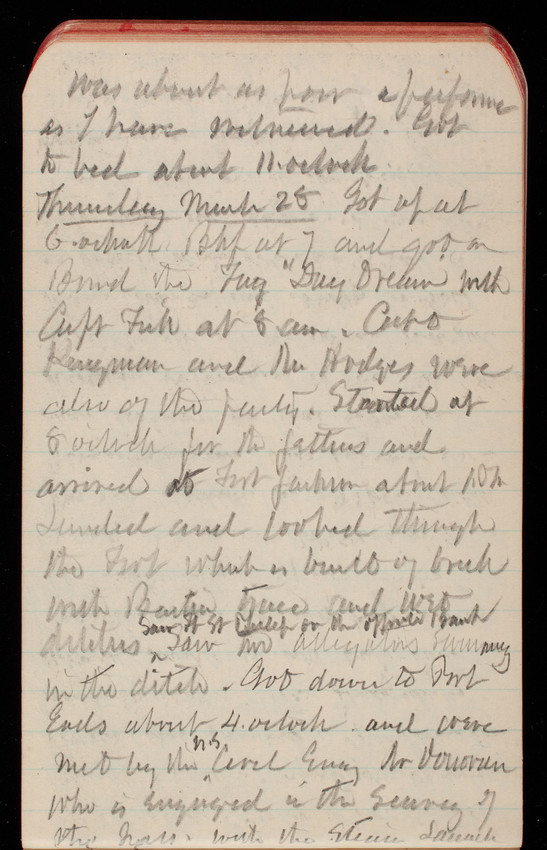 was about as poor a performe
as I have witnessed. Got
to bed about 11.oclock.
Thursday March 28 Got up at
6.oclock Bkf at 7 and got on
Board the Tug "Day Dream with
Capt Fish at 8 am. Capt
Kingman and Mr Hodges were
also of the party. Started at
8 oclock for the Jetties and
arrived at Fort Jackson about
Landed and looked through
the Fort which is built of brick
with Bastion trace and wet
Saw Ft St Philip on the opposite Bank
ditches Saw two alligators swimming
in the ditch. Got down to Port
Eads about 4.oclock and were
met by the U.S. Civil Eng Mr Donovan
who is engaged in the Survey of
the Pass. with the Steam Launch